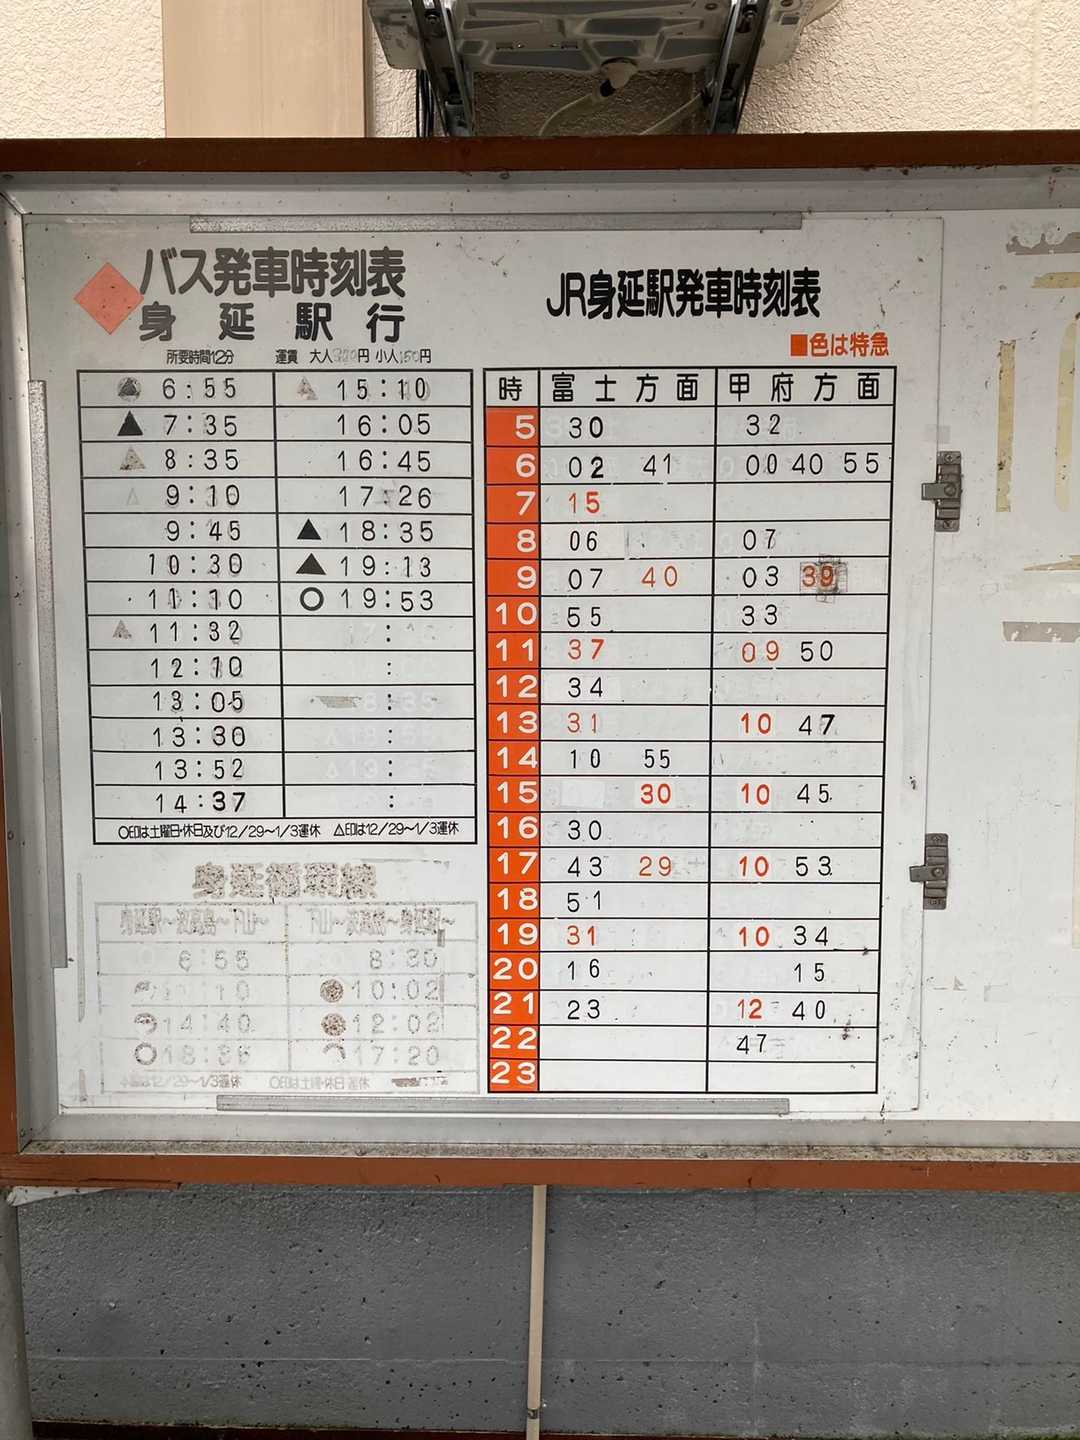 バス発車時刻表
身延駅行
所要時間12分 運賃 大人 円 小人150円
▲ 6:55
▲ 7:35
▲ 8:35
△ 9:10
9:45
10:30
11:10
▲ 11:32
12:10
13:05
13:30
13:52
14:37
△ 15:10
16:05
16:45
17:26
▲ 18:35
▲ 19:13
○ 19:53
:
:
8:35
:
:
:
○印は土曜日・休日及び12/29〜1/3運休 △印は12/29〜1/3運休
身延循環線
身延駅〜波高島〜下山〜
6:55
14:40
○ 18:35
下山〜波高島〜身延駅〜
8:30
10:02
12:02
17:20
印は12/29〜1/3運休 ○印は土曜・休日運休
JR身延駅発車時刻表
■色は特急
時 富士方面 甲府方面
5 30 32
6 02 41 00 40 55
7 15
8 06 07
9 07 40 03 39
10 55 33
11 37 09 50
12 34
13 31 10 47
14 10 55
15 30 10 45
16 30
17 43 29 10 53
18 51
19 31 10 34
20 16 15
21 23 12 40
22 47
23